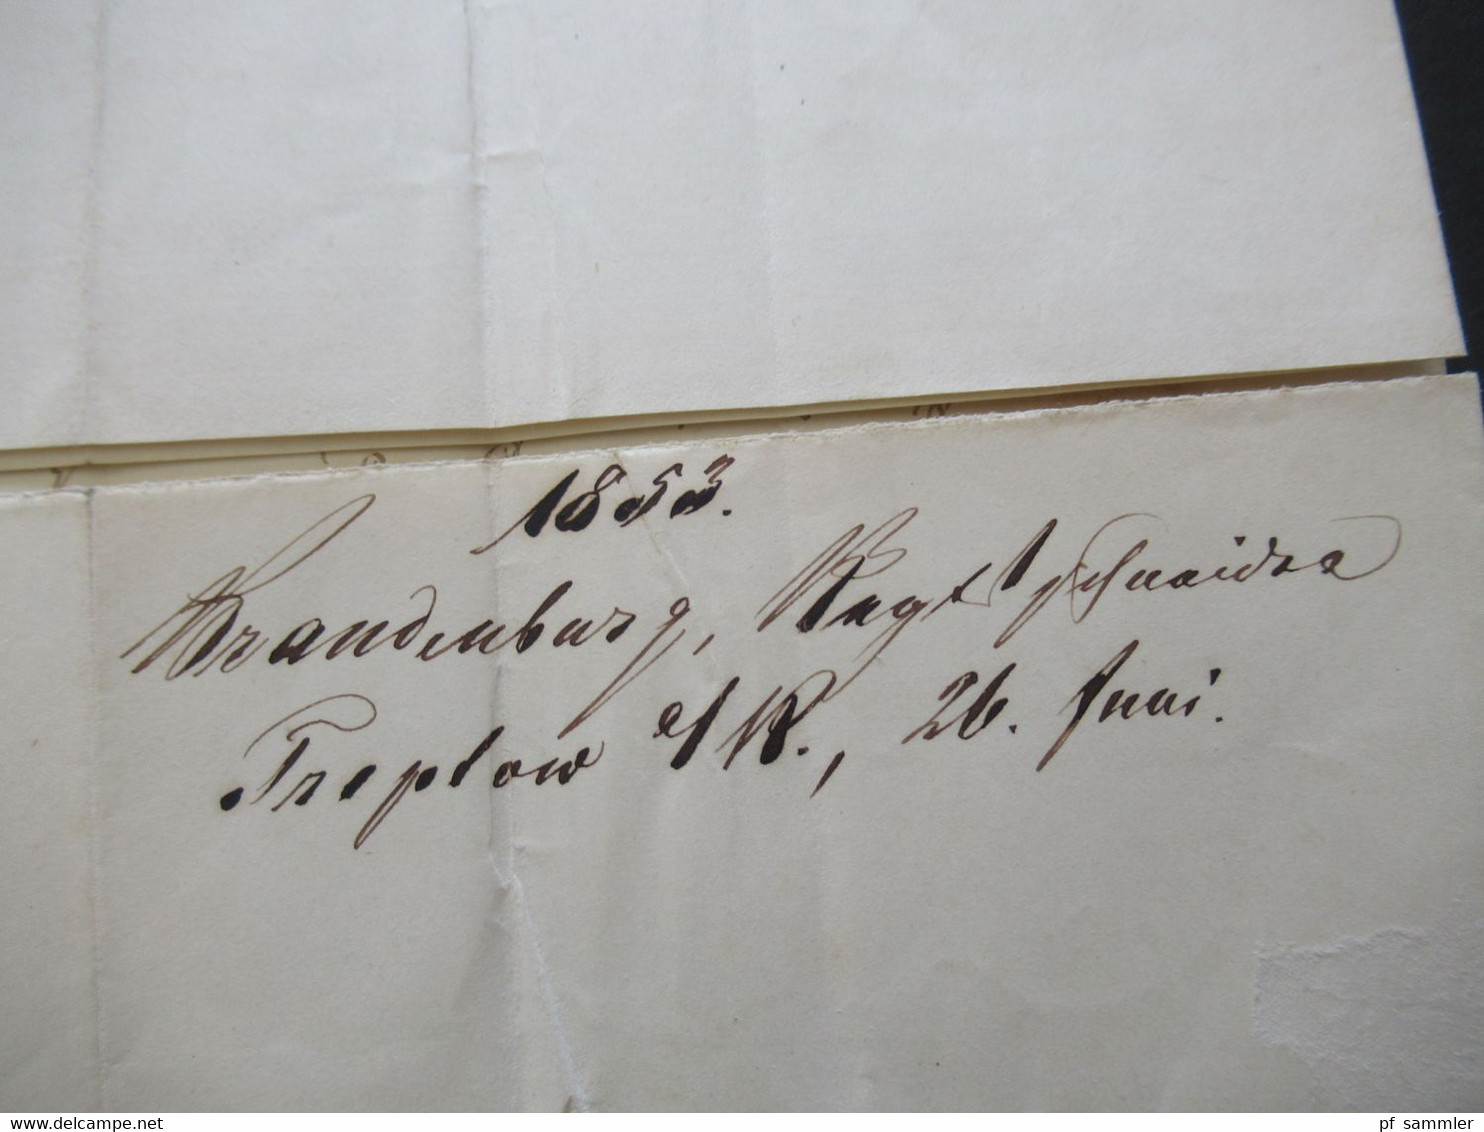 1853.
Brandenburg, Vogt & Schneider
Treptow a/R., 26. Juni.
delcampe.net
pf_sammler